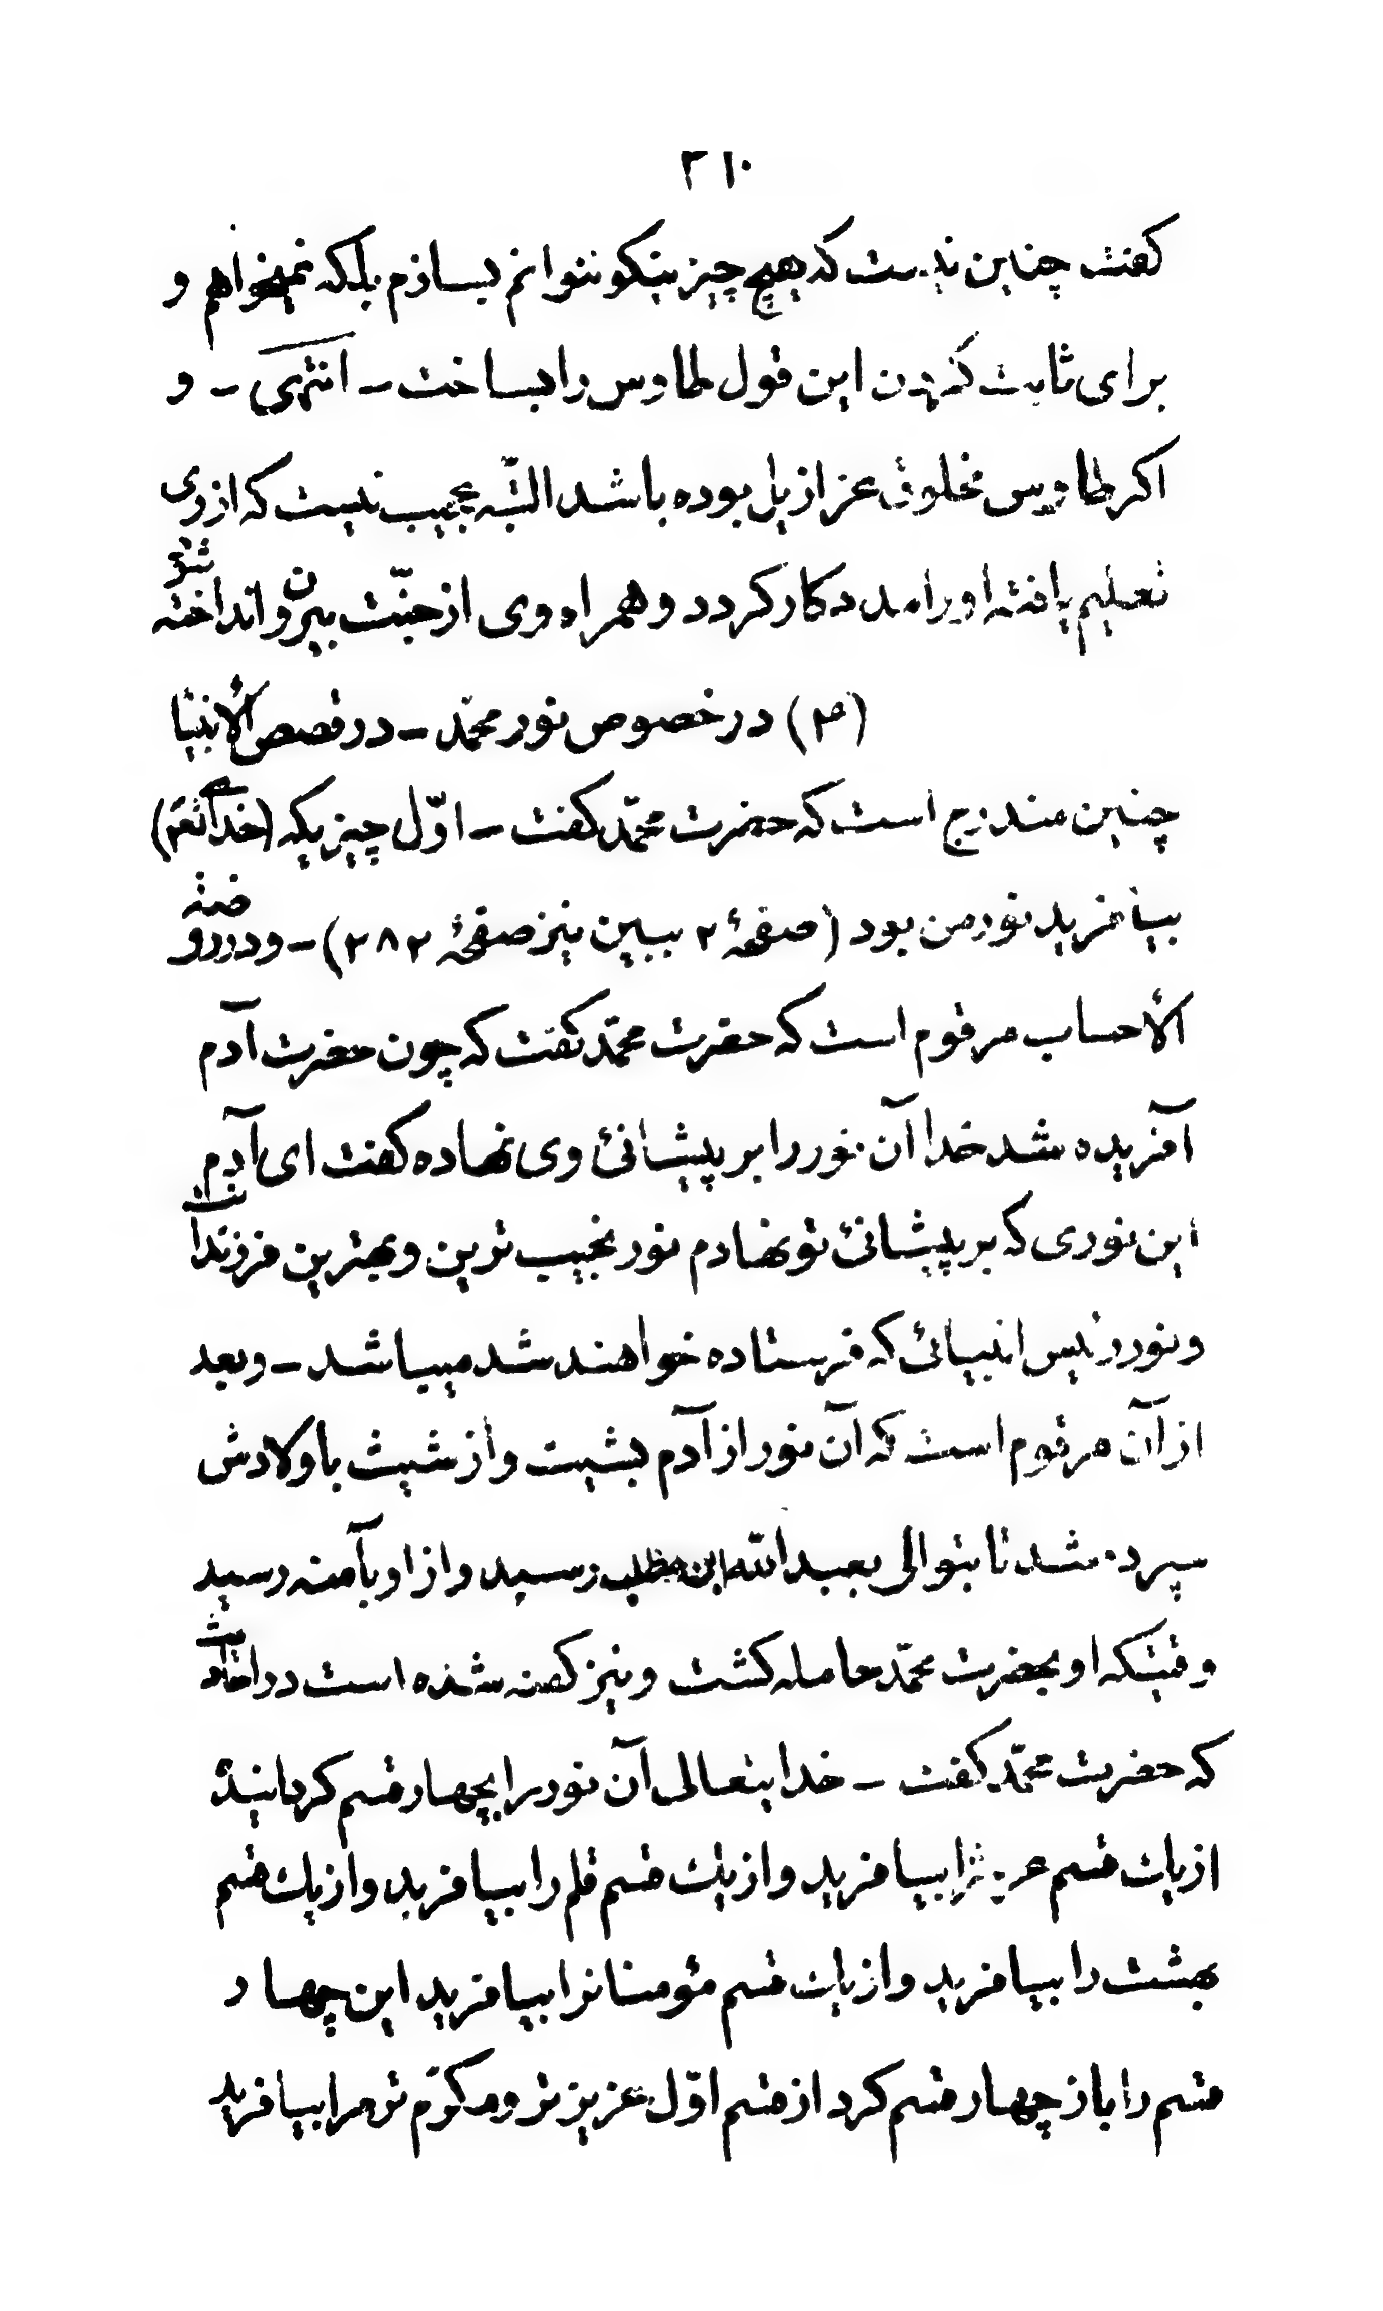 ۲۱۰
کفت چنین نیست که هیچ چیز نیکو نتوانم بسازم بلکه نمیخواهم و
برای ثابت کردن این قول طاوس را بساخت - انتهی - و
اکر طاوس مخلوق عزازیل بوده باشد البتّه عجیب نیست که از وی
تعلیم یافته او را مددکار کردد و همراه وی از جنّت بیرون انداخته شود
(۴) در خصوص نور محمّد - در قصص الانبیا
چنین مندرج است که حضرت محمّد کفت - اوّل چیزیکه (خدایتعم)
بیافرید نور من بود (صفحهٔ ۲ ببین نیز صفحهٔ ۲۸۲) - و در روضة
الاحساب مرقوم است که حضرت محمّد کفت که چون حضرت آدم
آفریده شد خدا آن نور را بر پیشانئ وی نهاده کفت ای آدم
این نوری که بر پیشانئ تو نهادم نور نجیب ترین و بهترین فرزندانت
و نور رئیس انبیائی که فرستاده خواهند شد میباشد - و بعد
از آن مرقوم است که آن نور از آدم بشیت و از شیث باولادش
سپرده شد تا بتوالی بعبدالله ابن مطلب رسید و از او بآمنه رسید
وقتیکه او بحضرت محمّد حامله کشت و نیز کفته شده است در احادیث
که حضرت محمّد کفت - خدایتعالی آن نور را بچهار قسم کردانیده
از یك قسم عرش را بیافرید و از یك قسم قلم را بیافرید و از یك قسم
بهشت را بیافرید و از یك قسم مؤمنانرا بیافرید این چهار
قسم را باز چهار قسم کرد از قسم اوّل عزیزتر و مکرّم تر مرا بیافرید